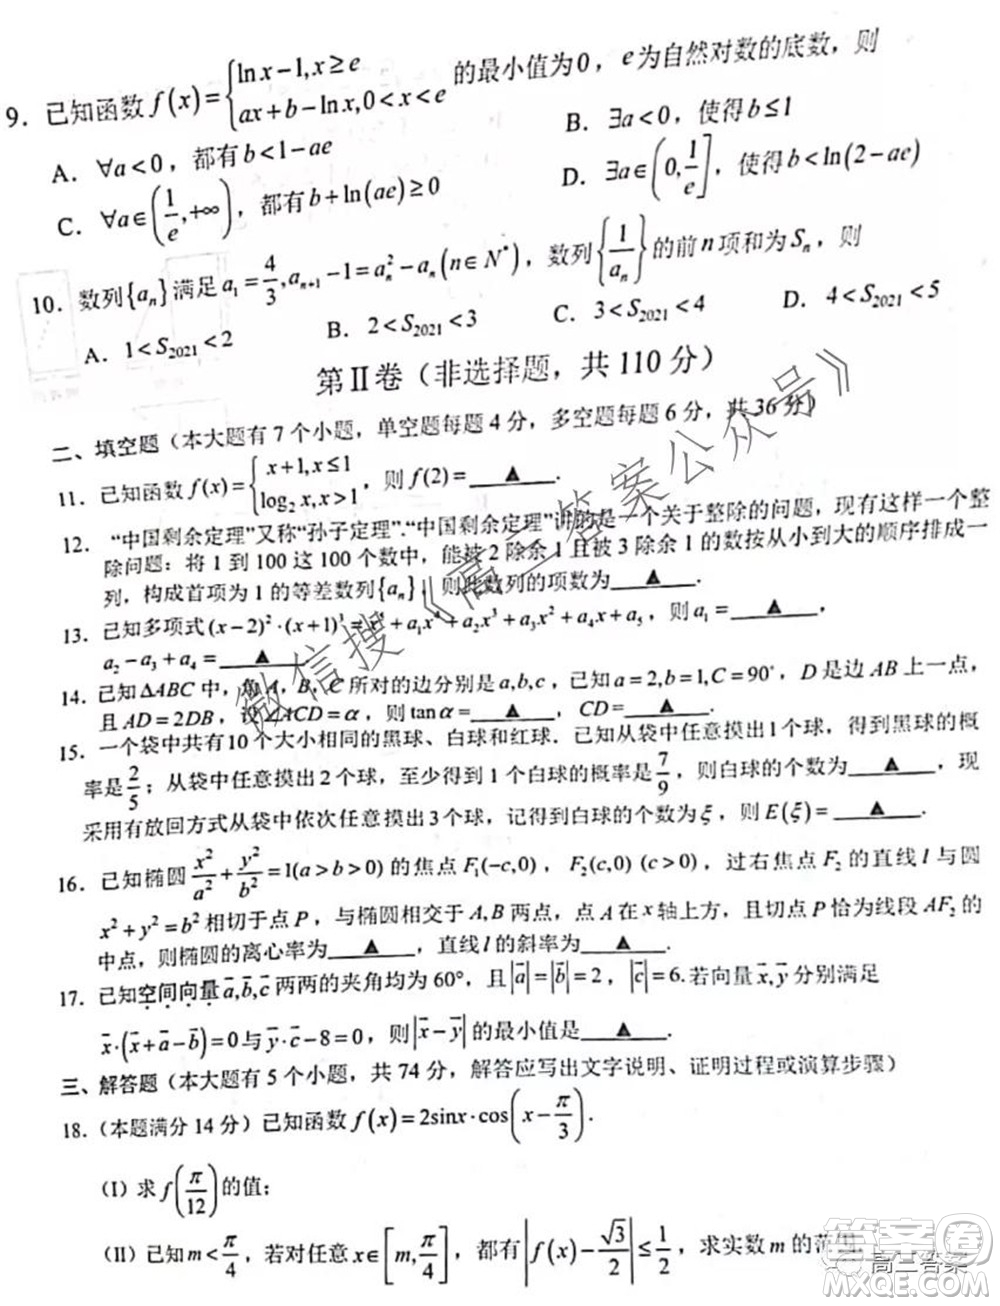 9. 已知函数 f(x)={ln x−1, x≥e; ax+b−ln x, 0<x<e 的最小值为0，e为自然对数的底数，则
A. ∀a<0，都有 b<1−ae
B. ∃a<0，使得 b≤1
C. ∀a∈(1/e,+∞)，都有 b+ln(ae)≥0
D. ∃a∈(0,1/e]，使得 b<ln(2−ae)
10. 数列{aₙ}满足 a₁=4/3, aₙ₊₁−1=aₙ²−aₙ(n∈N*)，数列{1/aₙ}的前n项和为Sₙ，则
A. 1<S₂₀₂₁<2
B. 2<S₂₀₂₁<3
C. 3<S₂₀₂₁<4
D. 4<S₂₀₂₁<5
第Ⅱ卷（非选择题，共110分）
二、填空题（本大题有7个小题，单空题每题4分，多空题每题6分，共36分）
11. 已知函数 f(x)={x+1, x≤1; log₂x, x>1，则 f(2)=▲
12. “中国剩余定理”又称“孙子定理”.“中国剩余定理”讲的是一个关于整除的问题，现有这样一个整
除问题：将1到100这100个数中，能被2除余1且被3除余1的数按从小到大的顺序排成一
列，构成首项为1的等差数列{aₙ}，则此数列的项数为▲.
13. 已知多项式 (x−2)²·(x+1)³=x⁵+a₁x⁴+a₂x³+a₃x²+a₄x+a₅，则 a₁=▲，
a₂−a₃+a₄=▲.
14. 已知ΔABC中，角A，B，C所对的边分别是a,b,c，已知a=2,b=1,C=90°，D是边AB上一点，
且AD=2DB，设∠ACD=α，则tanα=▲，CD=▲.
15. 一个袋中共有10个大小相同的黑球、白球和红球．已知从袋中任意摸出1个球，得到黑球的概
率是2/5；从袋中任意摸出2个球，至少得到1个白球的概率是7/9，则白球的个数为▲，现
采用有放回方式从袋中依次任意摸出3个球，记得到白球的个数为ξ，则E(ξ)=▲.
16. 已知椭圆 x²/a²+y²/b²=1(a>b>0) 的焦点F₁(−c,0)，F₂(c,0) (c>0)，过右焦点F₂的直线l与圆
x²+y²=b²相切于点P，与椭圆相交于A,B两点，点A在x轴上方，且切点P恰为线段AF₂的
中点，则椭圆的离心率为▲，直线l的斜率为▲.
17. 已知空间向量a⃗,b⃗,c⃗两两的夹角均为60°，且|a⃗|=|b⃗|=2，|c⃗|=6.若向量x⃗,y⃗分别满足
x⃗·(x⃗+a⃗−b⃗)=0与y⃗·c⃗−8=0，则|x⃗−y⃗|的最小值是▲.
三、解答题（本大题有5个小题，共74分，解答应写出文字说明、证明过程或演算步骤）
18.（本题满分14分）已知函数 f(x)=2sinx·cos(x−π/3).
(Ⅰ) 求f(π/12)的值；
(Ⅱ) 已知m<π/4，若对任意x∈[m,π/4]，都有|f(x)−√3/2|≤1/2，求实数m的范围
微信搜《高三答案公众号》
答案圈
高三答案
MXQE.COM